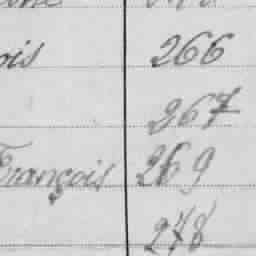 ois 266
267
François 269
278